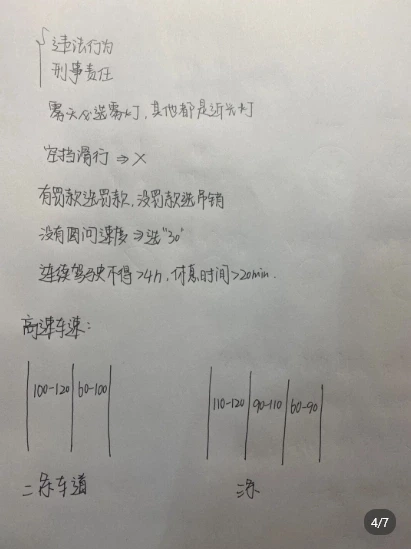 违法行为
刑事责任
雾天必选雾灯，其他都是近光灯
空挡滑行 ⇒ ×
有罚款选罚款，没罚款选吊销
没有图问速度 ⇒ 选"30"
连续驾驶不得 >4h，休息时间 >20min.
高速车速：
100-120 60-100
110-120 90-110 60-90
二条车道
三条
4/7